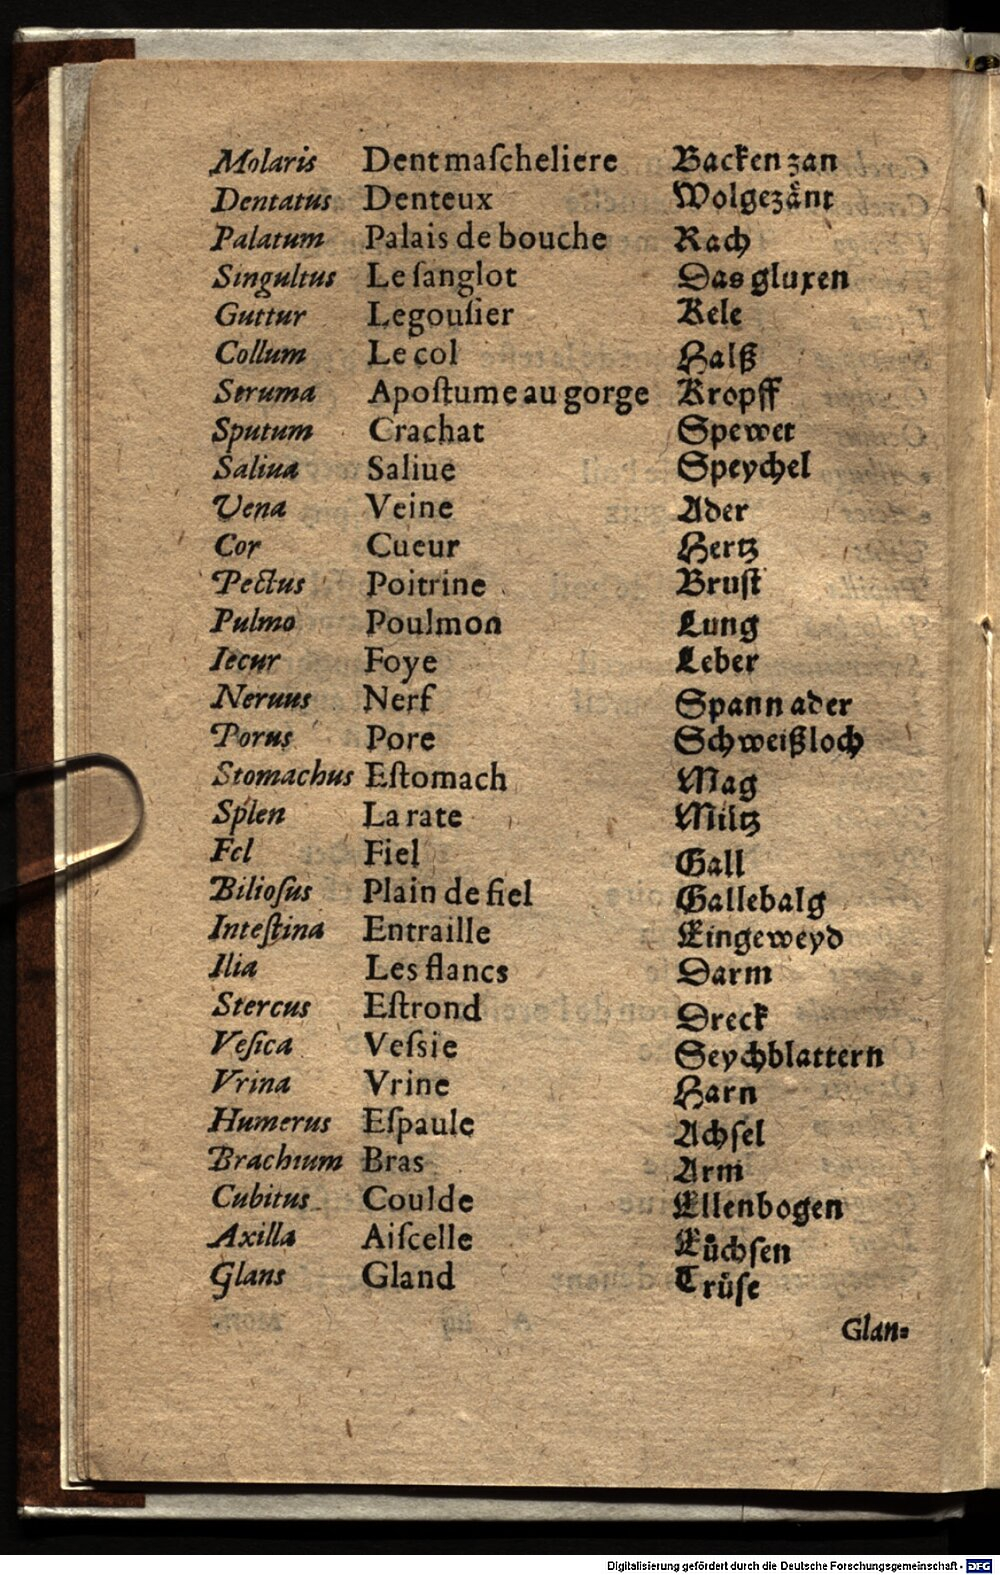 Molaris Dent maſcheliere Backen zan
Dentatus Denteux Wolgezaͤnt
Palatum Palais de bouche Rach
Singultus Le ſanglot Das gluxen
Guttur Legouſier Kele
Collum Le col Halß
Struma Apoſtume au gorge Kropff
Sputum Crachat Spewet
Saliua Saliue Speychel
Vena Veine Ader
Cor Cueur Hertz
Pectus Poitrine Bruſt
Pulmo Poulmon Lung
Iecur Foye Leber
Neruus Nerf Spann ader
Porus Pore Schweißloch
Stomachus Eſtomach Mag
Splen La rate Miltz
Fel Fiel Gall
Bilioſus Plain de fiel Gallebalg
Inteſtina Entraille Eingeweyd
Ilia Les flancs Darm
Stercus Eſtrond Dreck
Veſica Veſsie Seychblattern
Vrina Vrine Harn
Humerus Eſpaule Achſel
Brachium Bras Arm
Cubitus Coulde Ellenbogen
Axilla Aiſcelle Eůchſen
Glans Gland Truͤſe
Glan⸗
Digitalisierung gefördert durch die Deutsche Forschungsgemeinschaft - DFG